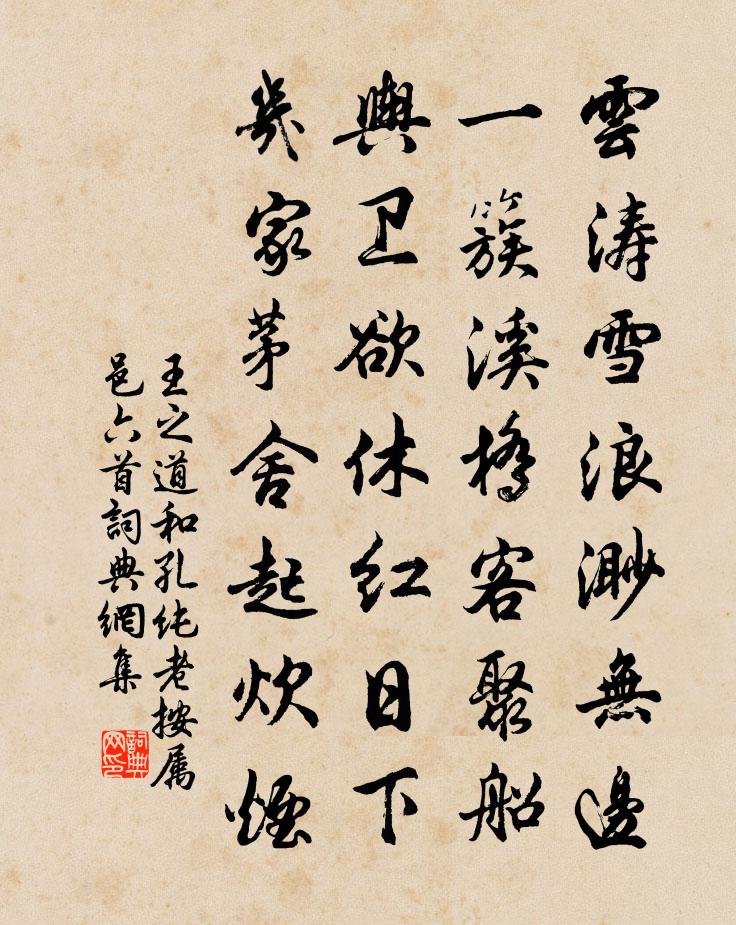 雲涛雪浪渺無邊
一簇溪橋客聚船
輿卫欲休红日下
幾家茅舍起炊煙
王之道和孔纯老按属
邑六首詞典網集
詞典网印